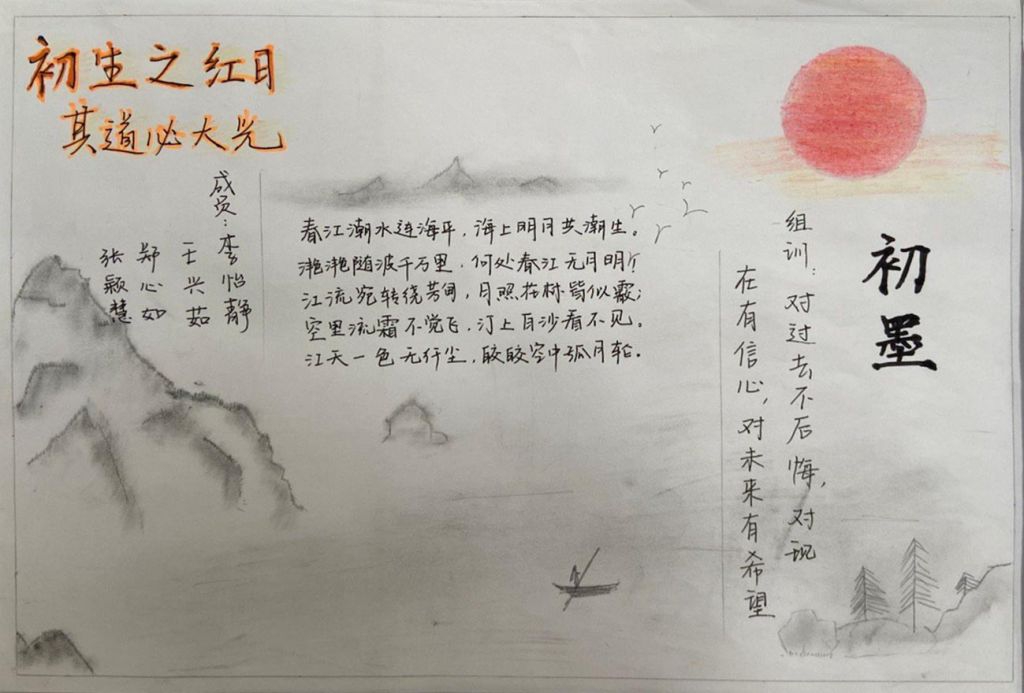 初生之红日
其道必大光
成员：李怡静
王兴茹
郑心如
张颖慧
春江潮水连海平，海上明月共潮生。
滟滟随波千万里，何处春江无月明！
江流宛转绕芳甸，月照花林皆似霰；
空里流霜不觉飞，汀上白沙看不见。
江天一色无纤尘，皎皎空中孤月轮。
初墨
组训：对过去不后悔，对现
在有信心，对未来有希望